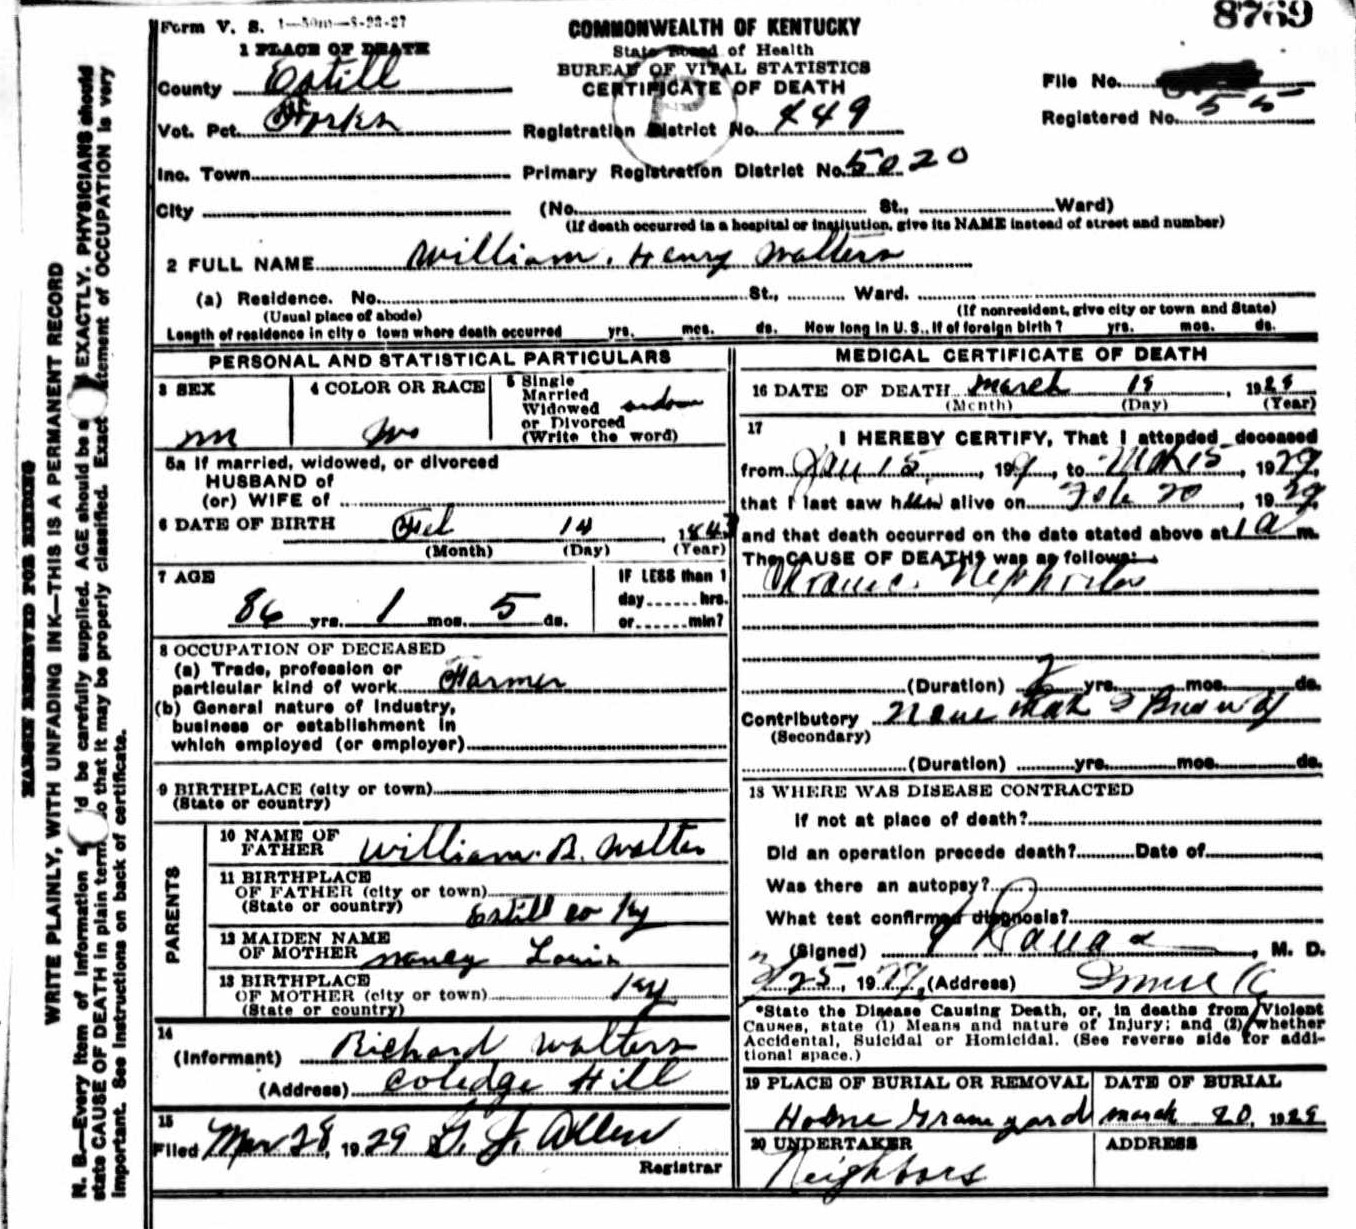 8769
Form V. S. 1-50m-8-23-27
COMMONWEALTH OF KENTUCKY
State Board of Health
BUREAU OF VITAL STATISTICS
CERTIFICATE OF DEATH
1 PLACE OF DEATH
County Estill
Vot. Pct.
Inc. Town
City
File No.
Registered No. 55
Registration District No. 449
Primary Registration District No. 5020
(No. St., Ward)
(If death occurred in a hospital or institution, give its NAME instead of street and number)
2 FULL NAME William. Henry Walters
(a) Residence. No. St., Ward.
(Usual place of abode) (If nonresident, give city or town and State)
Length of residence in city o town where death occurred yrs. mos. ds. How long in U. S., if of foreign birth? yrs. mos. ds.
PERSONAL AND STATISTICAL PARTICULARS
3 SEX
m
4 COLOR OR RACE
5 Single
Married
Widowed
or Divorced
(Write the word)
5a If married, widowed, or divorced
HUSBAND of
(or) WIFE of
6 DATE OF BIRTH Feb 14, 1843
(Month) (Day) (Year)
7 AGE
86 yrs. 1 mos. 5 ds.
IF LESS than 1
day hrs.
or min?
8 OCCUPATION OF DECEASED
(a) Trade, profession or
particular kind of work Farmer
(b) General nature of industry,
business or establishment in
which employed (or employer)
9 BIRTHPLACE (city or town)
(State or country)
PARENTS
10 NAME OF
FATHER William. B. Walter
11 BIRTHPLACE
OF FATHER (city or town)
(State or country) Estill co Ky
12 MAIDEN NAME
OF MOTHER Nancy
13 BIRTHPLACE
OF MOTHER (city or town) Ky
(State or country)
14
(Informant) Richard Walters
(Address) Coledge Hill
15
Filed Mar 28, 1929 G. J. Allen
Registrar
MEDICAL CERTIFICATE OF DEATH
16 DATE OF DEATH March 19, 1929
(Month) (Day) (Year)
17
I HEREBY CERTIFY, That I attended deceased
from Jan 15, 199, to Mar 15, 1929,
that I last saw h alive on Feb 20, 1929
and that death occurred on the date stated above at 1 a m.
The CAUSE OF DEATH* was as follows:
Chronic. Nephritis
(Duration) 2 yrs. mos. ds.
Contributory None that I
(Secondary)
(Duration) yrs. mos. ds.
18 WHERE WAS DISEASE CONTRACTED
If not at place of death?
Did an operation precede death? Date of
Was there an autopsy?
What test confirmed diagnosis?
(Signed) , M. D.
3/25, 1929, (Address)
*State the Disease Causing Death, or, in deaths from Violent
Causes, state (1) Means and nature of Injury; and (2) whether
Accidental, Suicidal or Homicidal. (See reverse side for addi-
tional space.)
19 PLACE OF BURIAL OR REMOVAL
Home Graveyard
DATE OF BURIAL
March 20, 1929
20 UNDERTAKER
Neighbors
ADDRESS
MARGIN RESERVED FOR BINDING
WRITE PLAINLY, WITH UNFADING INK—THIS IS A PERMANENT RECORD
N. B.—Every item of information 'd be carefully supplied. AGE should be EXACTLY. PHYSICIANS should
state CAUSE OF DEATH in plain term so that it may be properly classified. Exact tement of OCCUPATION is very
important. See instructions on back of certificate.